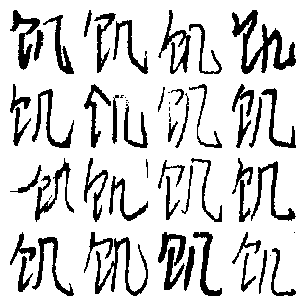 饥饥饥饥
饥饥饥饥
饥饥饥饥
饥饥饥饥